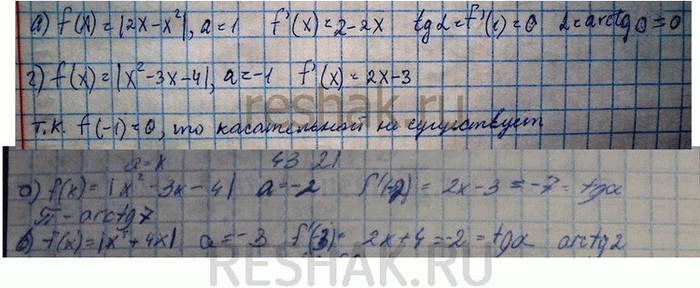 а) f(x) = |2x-x²|, a=1 f'(x)=2-2x tgα=f'(1)=0 α=arctg0=0
г) f(x) = |x²-3x-4|, a=-1 f'(x)=2x-3
reshak.ru
т.к. f(-1)=0, то касательной не существует
a=x 43 21
б) f(x) = |x²-3x-4| a=-2 f'(-2) = 2x-3=-7=tgα
π-arctg7
в) f(x)=|x²+4x| a=-3 f'(3)= 2x+4=-2=tgα arctg2
RESHAK.RU